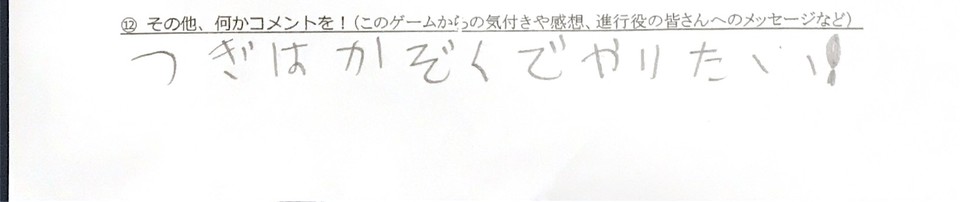 ⑫ その他、何かコメントを！（このゲームからの気付きや感想、進行役の皆さんへのメッセージなど）
つぎはかぞくでやりたいい!